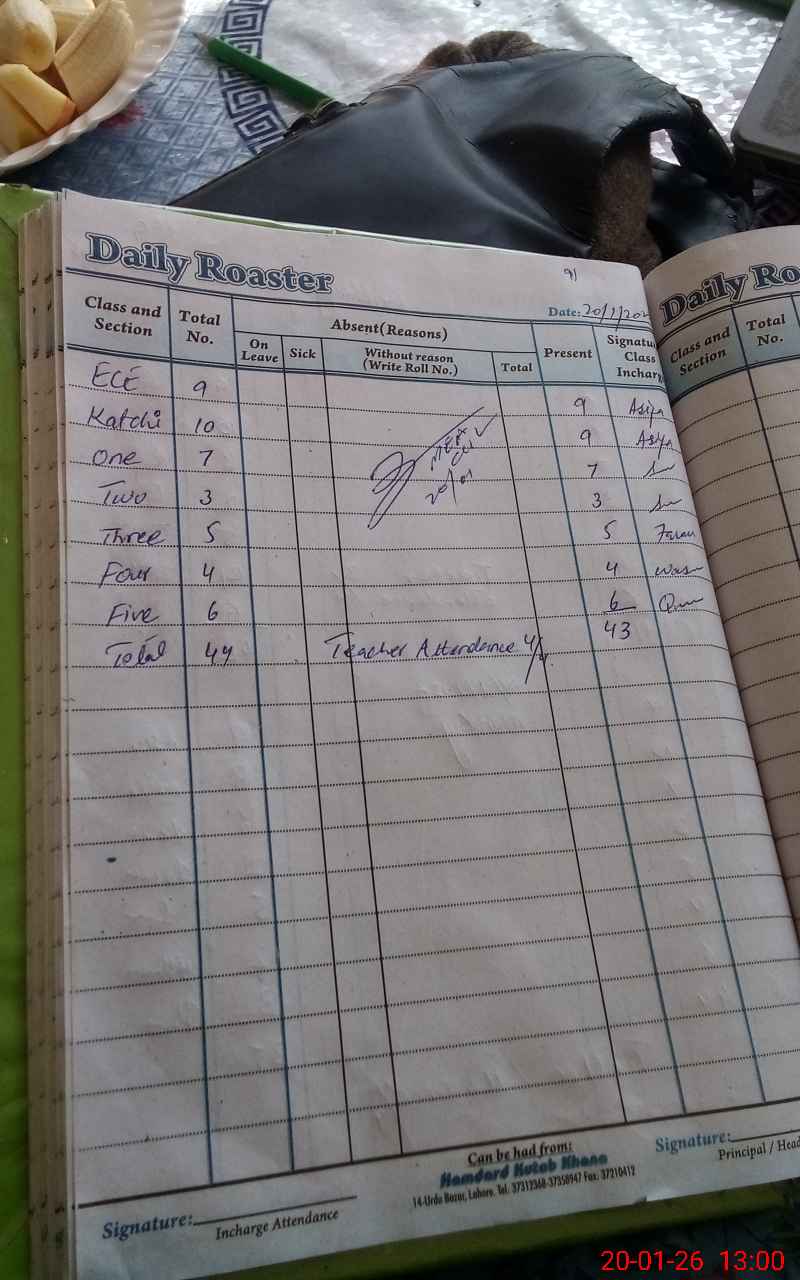 Daily Roaster
9)
Date: 20/1/202
Class and Section Total No. Absent(Reasons) Present Signatu Class Incharg
On Leave Sick Without reason (Write Roll No.) Total
ECE 9 9 Asiya
Katchi 10 9 Asiya
One 7 7
Two 3 3
Three 5 5
Four 4 4
Five 6 6
Total 44 Teacher Attendance 4/4 43
MEA
20/01
Signature:
Incharge Attendance
Can be had from:
Hamdard Kutab Khana
14-Urdu Bazar, Lahore. Tel. 37312368-37358947 Fax: 37210412
Signature:
Principal / Head
Daily Ro
Class and Section Total No.
20-01-26 13:00